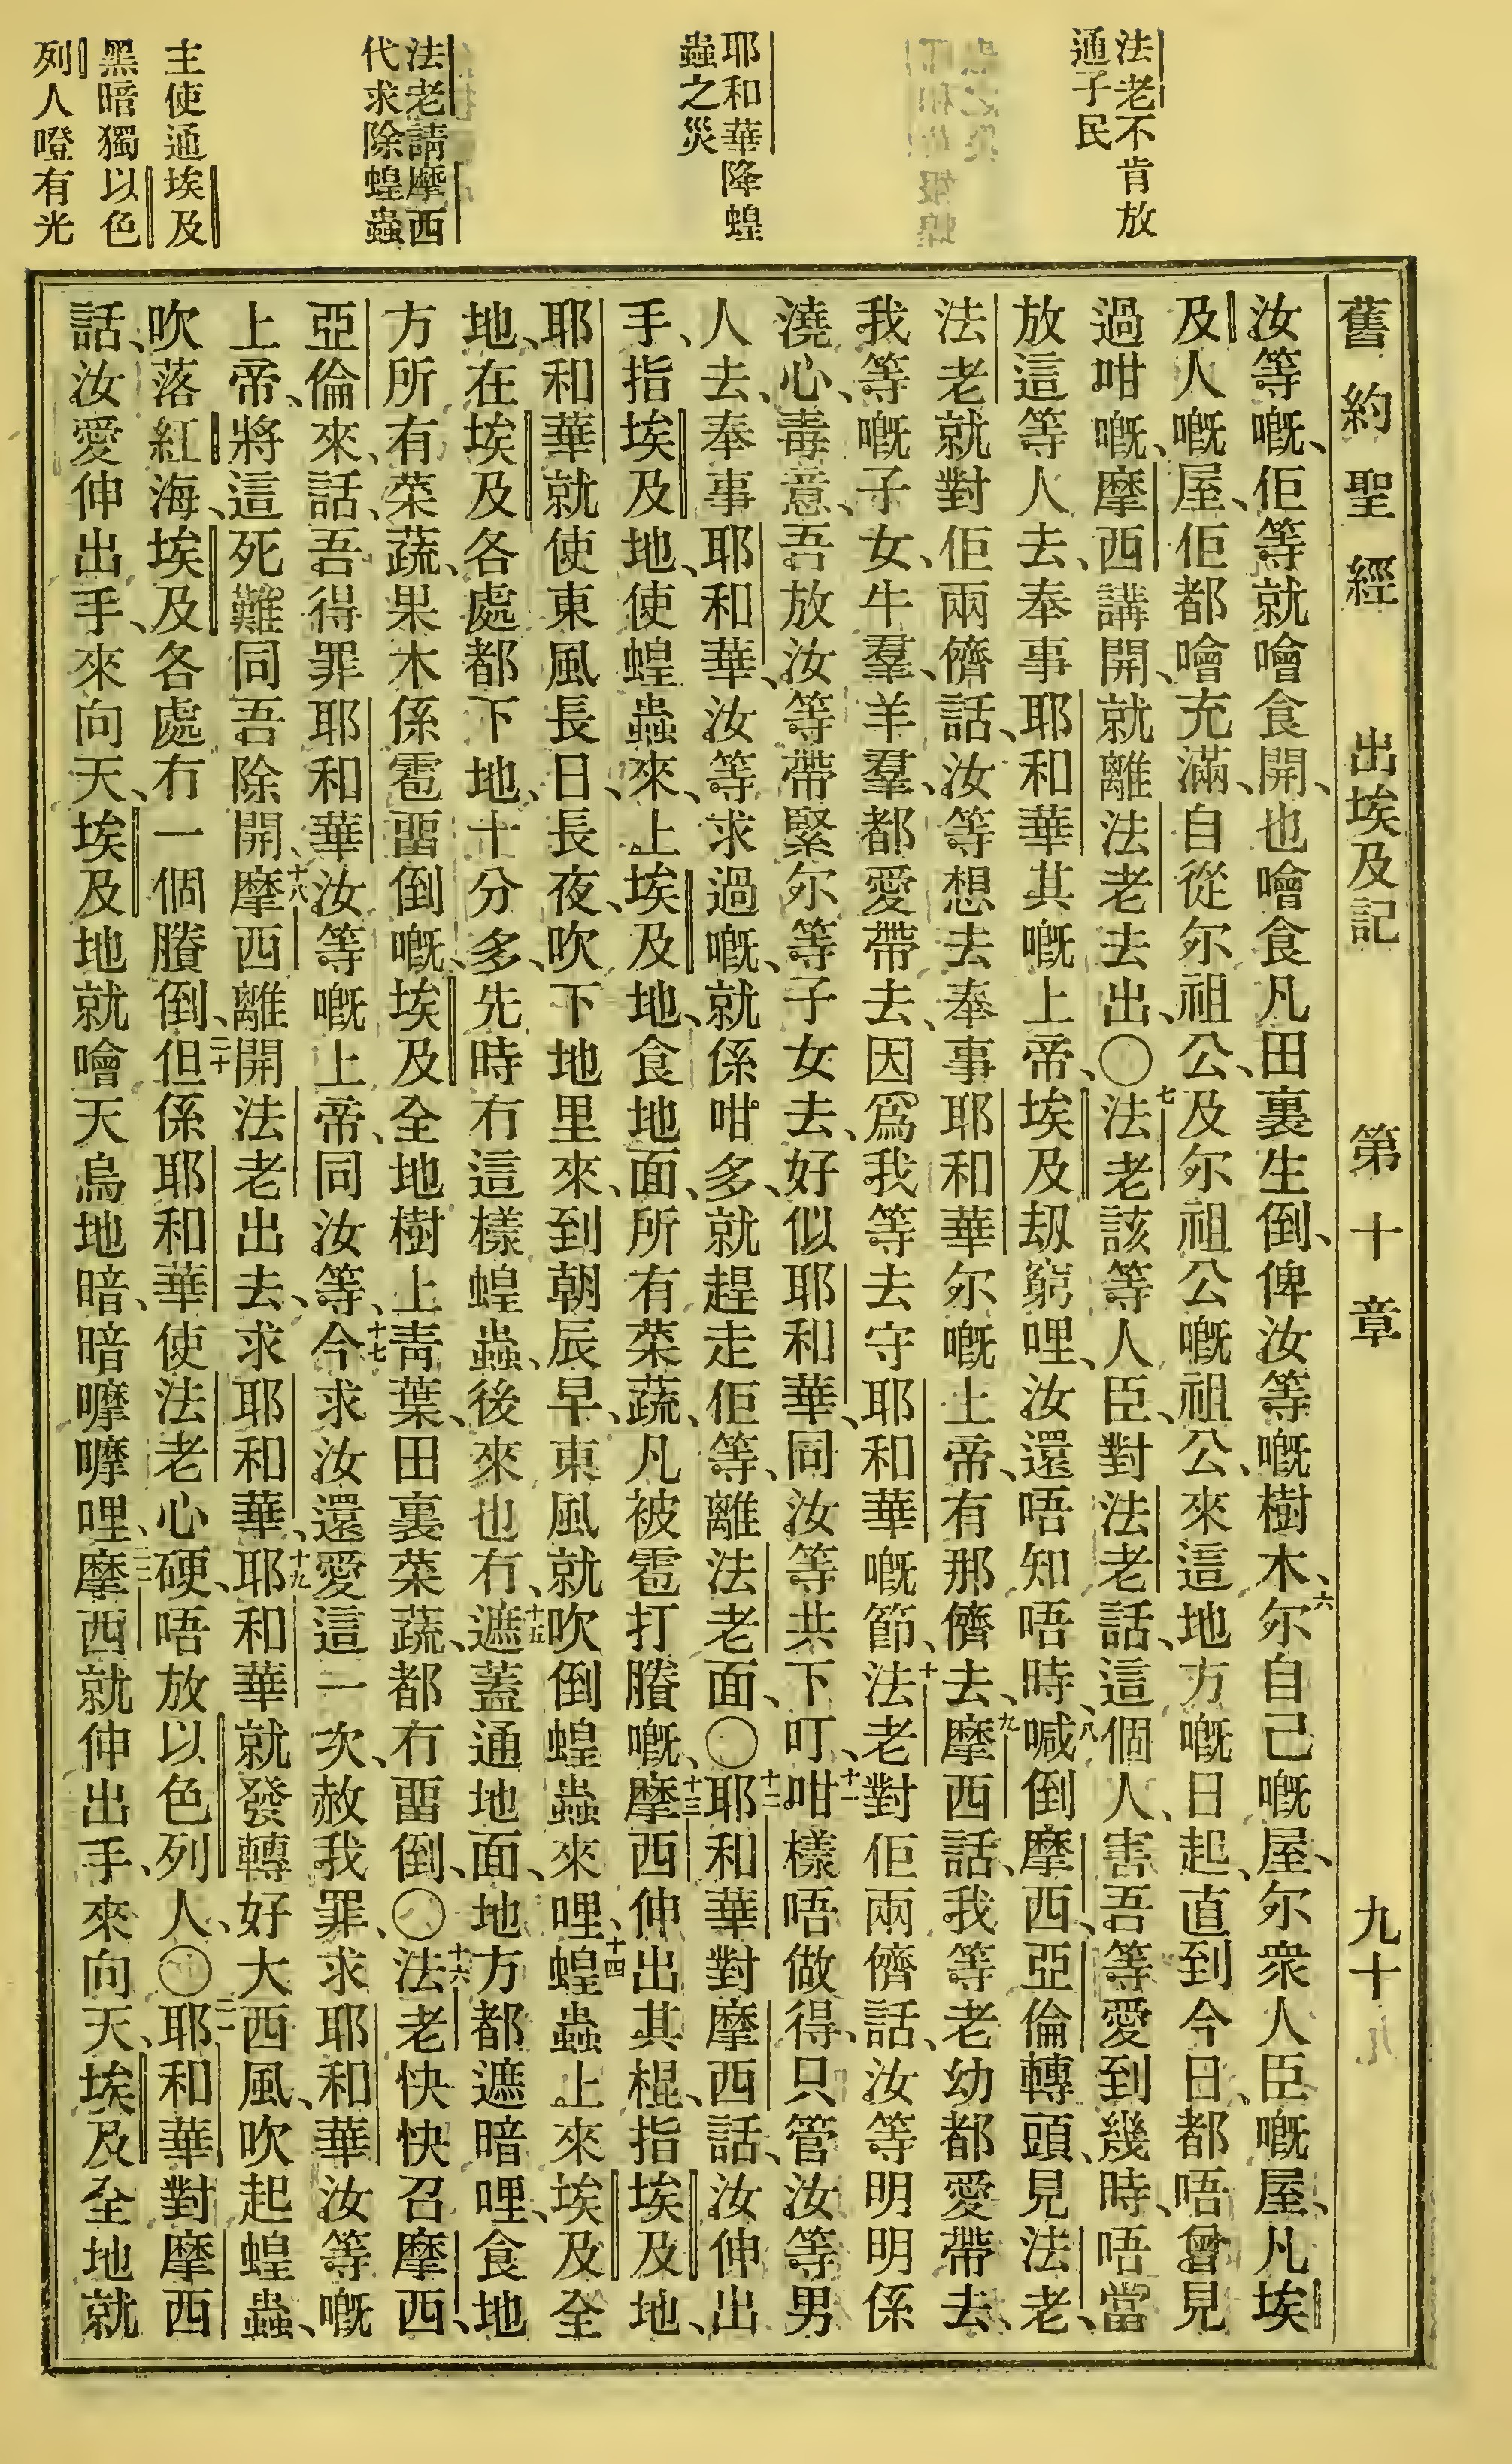 法老不肯放
通子民
耶和華降蝗
蟲之災
法老請摩西
代求除蝗蟲
主使通埃及
黑暗獨以色
列人噔有光
舊約聖經 出埃及記 第十章 九十
汝等嘅、佢等就噲食開、也噲食凡田裏生倒、俾汝等嘅樹木、六尔自己嘅屋、尔衆人臣嘅屋、凡埃
及人嘅屋、佢都噲充滿、自從尔祖公、及尔祖公嘅祖公、來這地方嘅日起、直到今日、都唔曾見
過咁嘅、摩西講開、就離法老去出、〇七法老該等人臣、對法老話、這個人、害吾等愛到幾時、唔當
放這等人去、奉事耶和華其嘅上帝、埃及刼窮哩、汝還唔知唔時、八喊倒摩西、亞倫轉頭、見法老、
法老就對佢兩儕話、汝等想去奉事耶和華尔嘅上帝、有那儕去、九摩西話、我等老幼都愛帶去、
我等嘅子女、牛羣、羊羣、都愛帶去、因爲我等去守耶和華嘅節、十法老對佢兩儕話、汝等明明係
澆心、毒意、吾放汝等帶緊尔等子女去、好似耶和華、同汝等共下叮、十一咁樣唔做得、只管汝等男
人去、奉事耶和華、汝等求過嘅、就係咁多、就趕走佢等、離法老面、〇十二耶和華對摩西話、汝伸出
手、指埃及地、使蝗蟲來、上埃及地、食地面、所有菜蔬、凡被雹打賸嘅、十三摩西伸出其棍、指埃及地、
耶和華就使東風長日、長夜、吹下地里來、到朝辰早、東風就吹倒蝗蟲來哩、十四蝗蟲上來埃及全
地、在埃及各處都下地、十分多、先時冇這樣蝗蟲、後來也冇、十五遮蓋通地面、地方都遮暗哩、食地
方所有菜蔬、果木係雹畱倒嘅、埃及全地樹上靑葉、田裏菜蔬、都冇畱倒、〇十六法老快快召摩西、
亞倫來、話、吾得罪耶和華汝等嘅上帝、同汝等、十七今求汝還愛這一次、赦我罪、求耶和華汝等嘅
上帝、將這死難同吾除開、十八摩西離開法老出去、求耶和華、十九耶和華就發轉好大西風、吹起蝗蟲、
吹落紅海、埃及各處冇一個賸倒、二十但係耶和華使法老心硬、唔放以色列人、〇二一耶和華對摩西
話、汝愛伸出手、來向天、埃及地就噲天烏地暗、暗嚤嚤哩、二二摩西就伸出手、來向天、埃及全地就